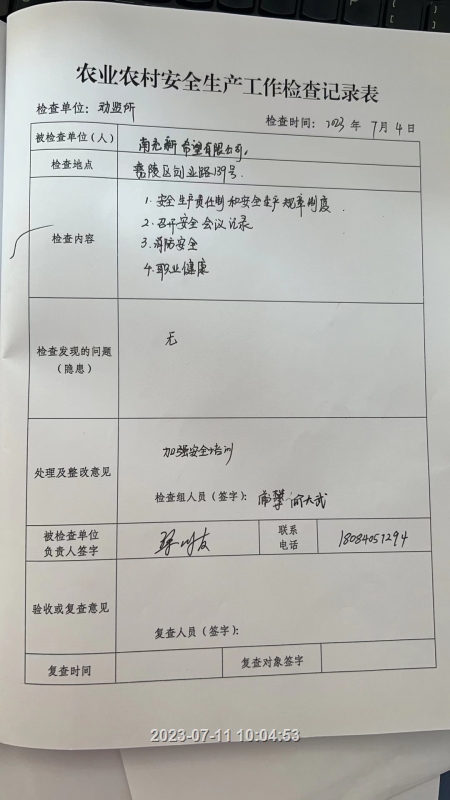 农业农村安全生产工作检查记录表
检查单位：动监所
检查时间：2023 年 7 月 4 日
被检查单位(人) 南充新希望有限公司.
检查地点 嘉陵区创业路139号.
检查内容
1. 安全生产责任制和安全生产规章制度.
2. 召开安全会议记录
3. 消防安全
4. 职业健康
检查发现的问题
（隐患）
无
处理及整改意见
加强安全培训
检查组人员（签字）：
被检查单位
负责人签字
联系
电话
18084051294
验收或复查意见
复查人员（签字）：
复查时间 复查对象签字
2023-07-11 10:04:53